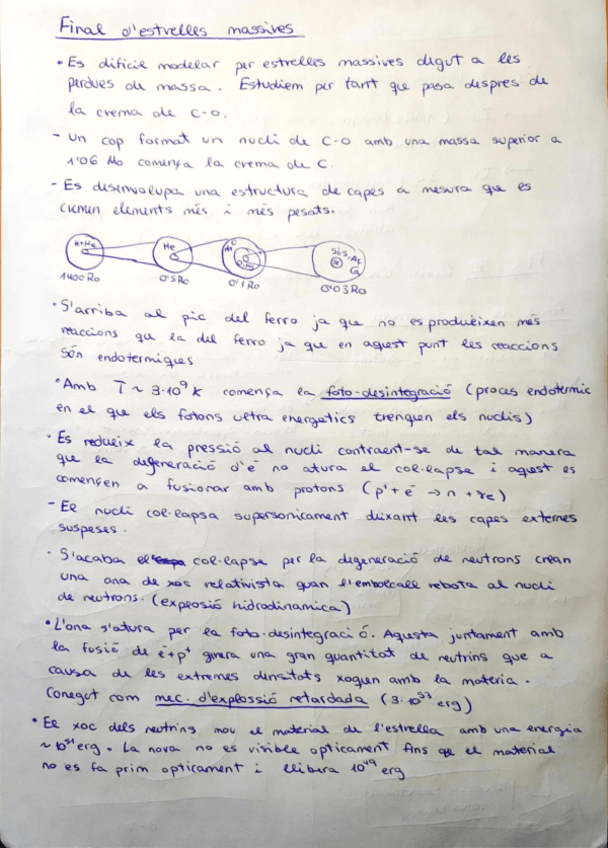 Final d'estrelles massives
• Es dificil modelar per estrelles massives degut a les
perdues de massa. Estudiem per tant que pasa despres de
la crema de C-O.
- Un cop format un nucli de C-O amb una massa superior a
1'06 Mo comença la crema de C.
- Es desenvolupa una estructura de capes a mesura que es
cremen elements més i més pesats.
H+He He C Si S, Ar Ca
1400 Ro 0'5 Ro 0'1 Ro 0'03 Ro
• S'arriba al pic del ferro ja que no es produeixen més
reaccions que la del ferro ja que en aquest punt les reaccions
són endotermiques
• Amb T ~ 3·10⁹ K comença la foto-desintegració (proces endotermic
en el que els fotons ultra energetics trenquen els nuclis)
• Es redueix la pressió al nucli contraent-se de tal manera
que la degeneració d'e⁻ no atura el col·lapse i aquest es
comencen a fusionar amb protons (p⁺ + e⁻ → n + γe)
- El nucli col·lapsa supersonicament deixant les capes externes
suspeses.
• S'acaba el col·lapse per la degeneració de neutrons crean
una ona de xoc relativista quan l'embolcall rebota al nucli
de neutrons. (explosió hidrodinamica)
• L'ona s'atura per la foto-desintegració. Aquesta juntament amb
la fusió de e⁻+p⁺ genera una gran quantitat de neutrins que a
causa de les extremes densitats xoquen amb la materia.
Conegut com mec. d'explossió retardada (3·10⁵³ erg)
• El xoc dels neutrins mou el material de l'estrella amb una energia
~ 10⁵¹ erg. La nova no es visible opticament fins qe el material
no es fa prim opticament i llibera 10⁴⁹ erg